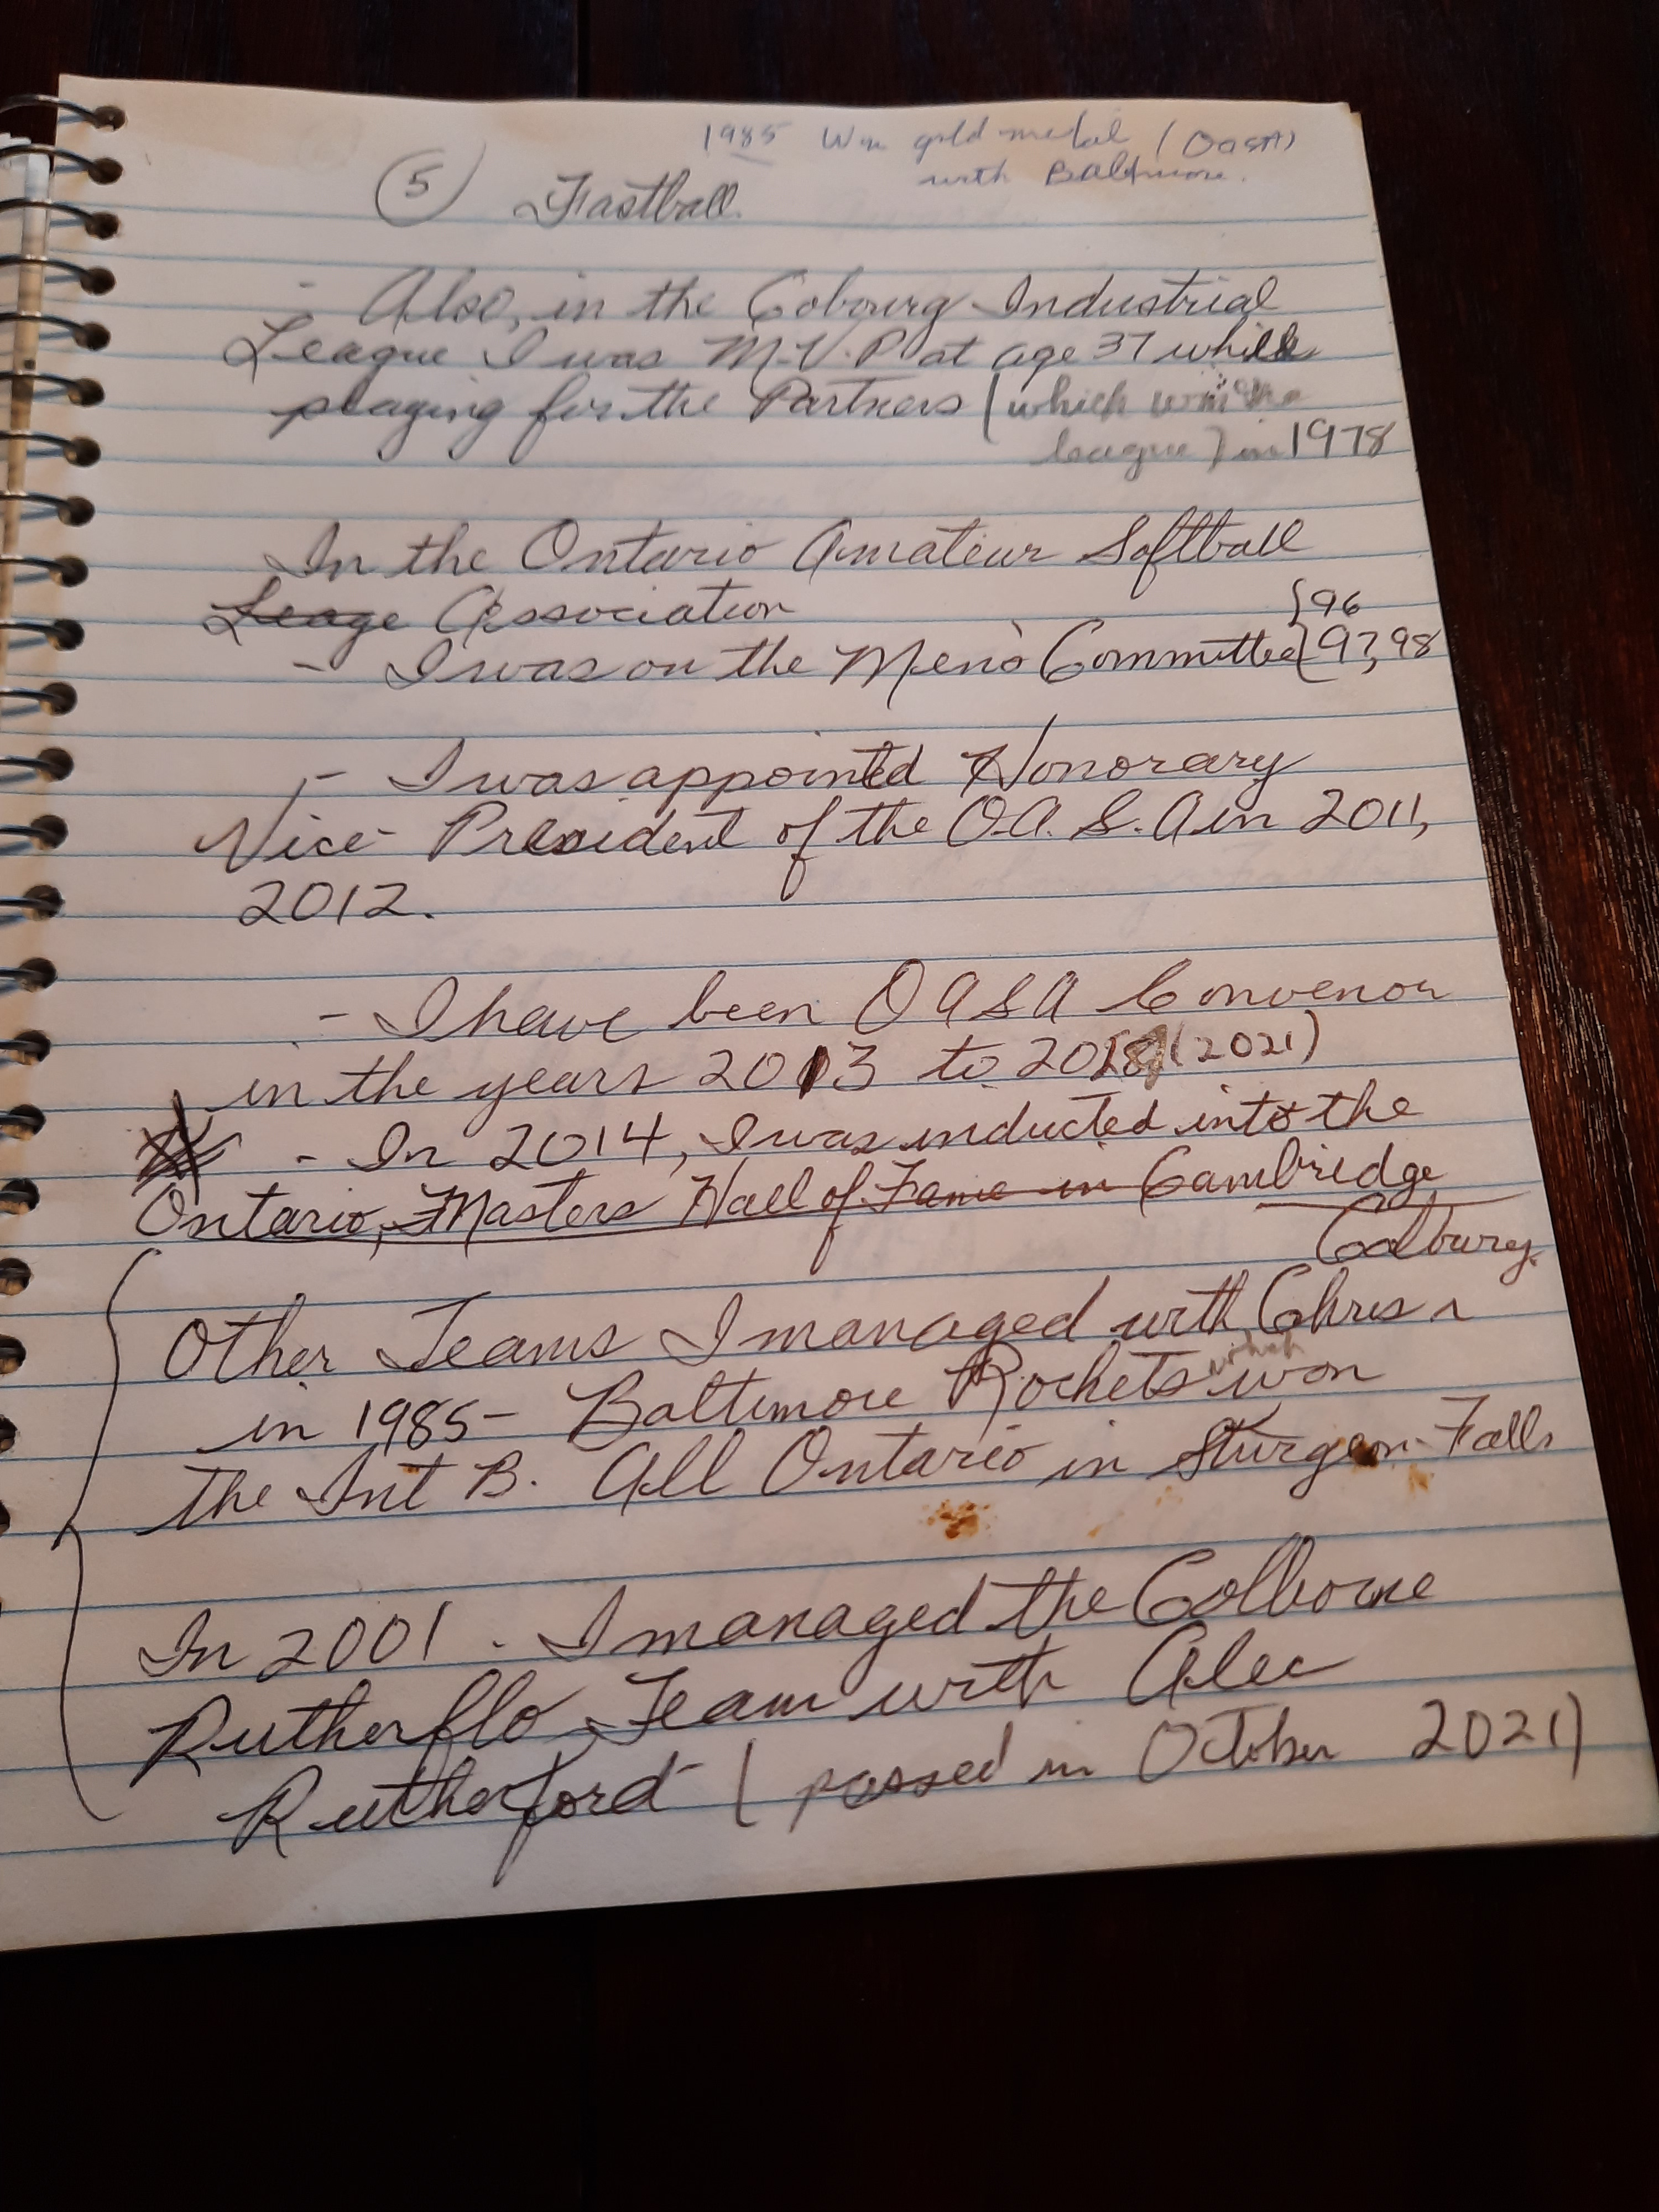 1985 Won gold medal (OASA)
with Baltimore.
5 Fastball.
- Also, in the Cobourg Industrial
League I was M.V.P at age 37 while
playing for the Partners (which won the
league) in 1978
In the Ontario Amateur Softball
Leage Association
- I was on the Men's Committee {96
}97,98
- I was appointed Honorary
Vice-President of the O.A.S.A in 2011,
2012.
- I have been OASA Convenor
in the years 2013 to 2018 (2021)
- In 2014, I was inducted into the
Ontario, Masters Hall of Fame in Cambridge
Other Teams I managed with Chris
in 1985 - Baltimore Rockets which won
the Int B. All Ontario in Sturgeon Falls
In 2001 - I managed the Colborne
Rutherflo Team with Alec
Rutherford (passed in October 2021)